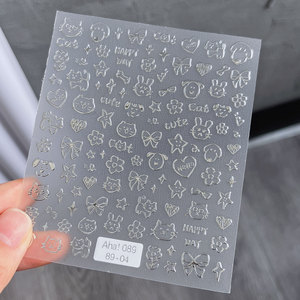 HAPPY
DAY
Cat
cute
Cat
cute
HAPPY
DAY
Aha! 089
89-04